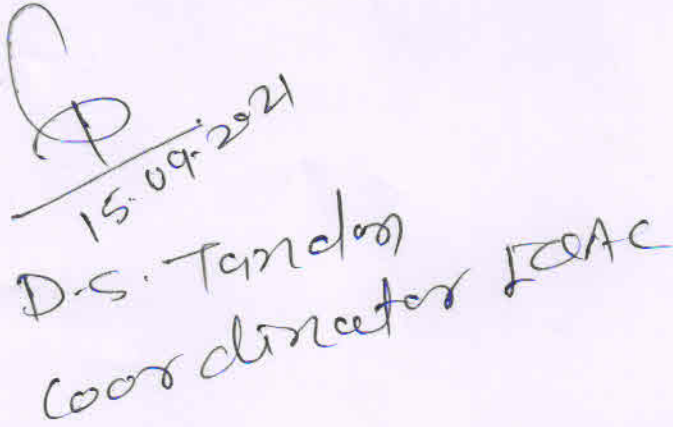 15.09.2021
D.S. Tandon
Coordinator IQAC